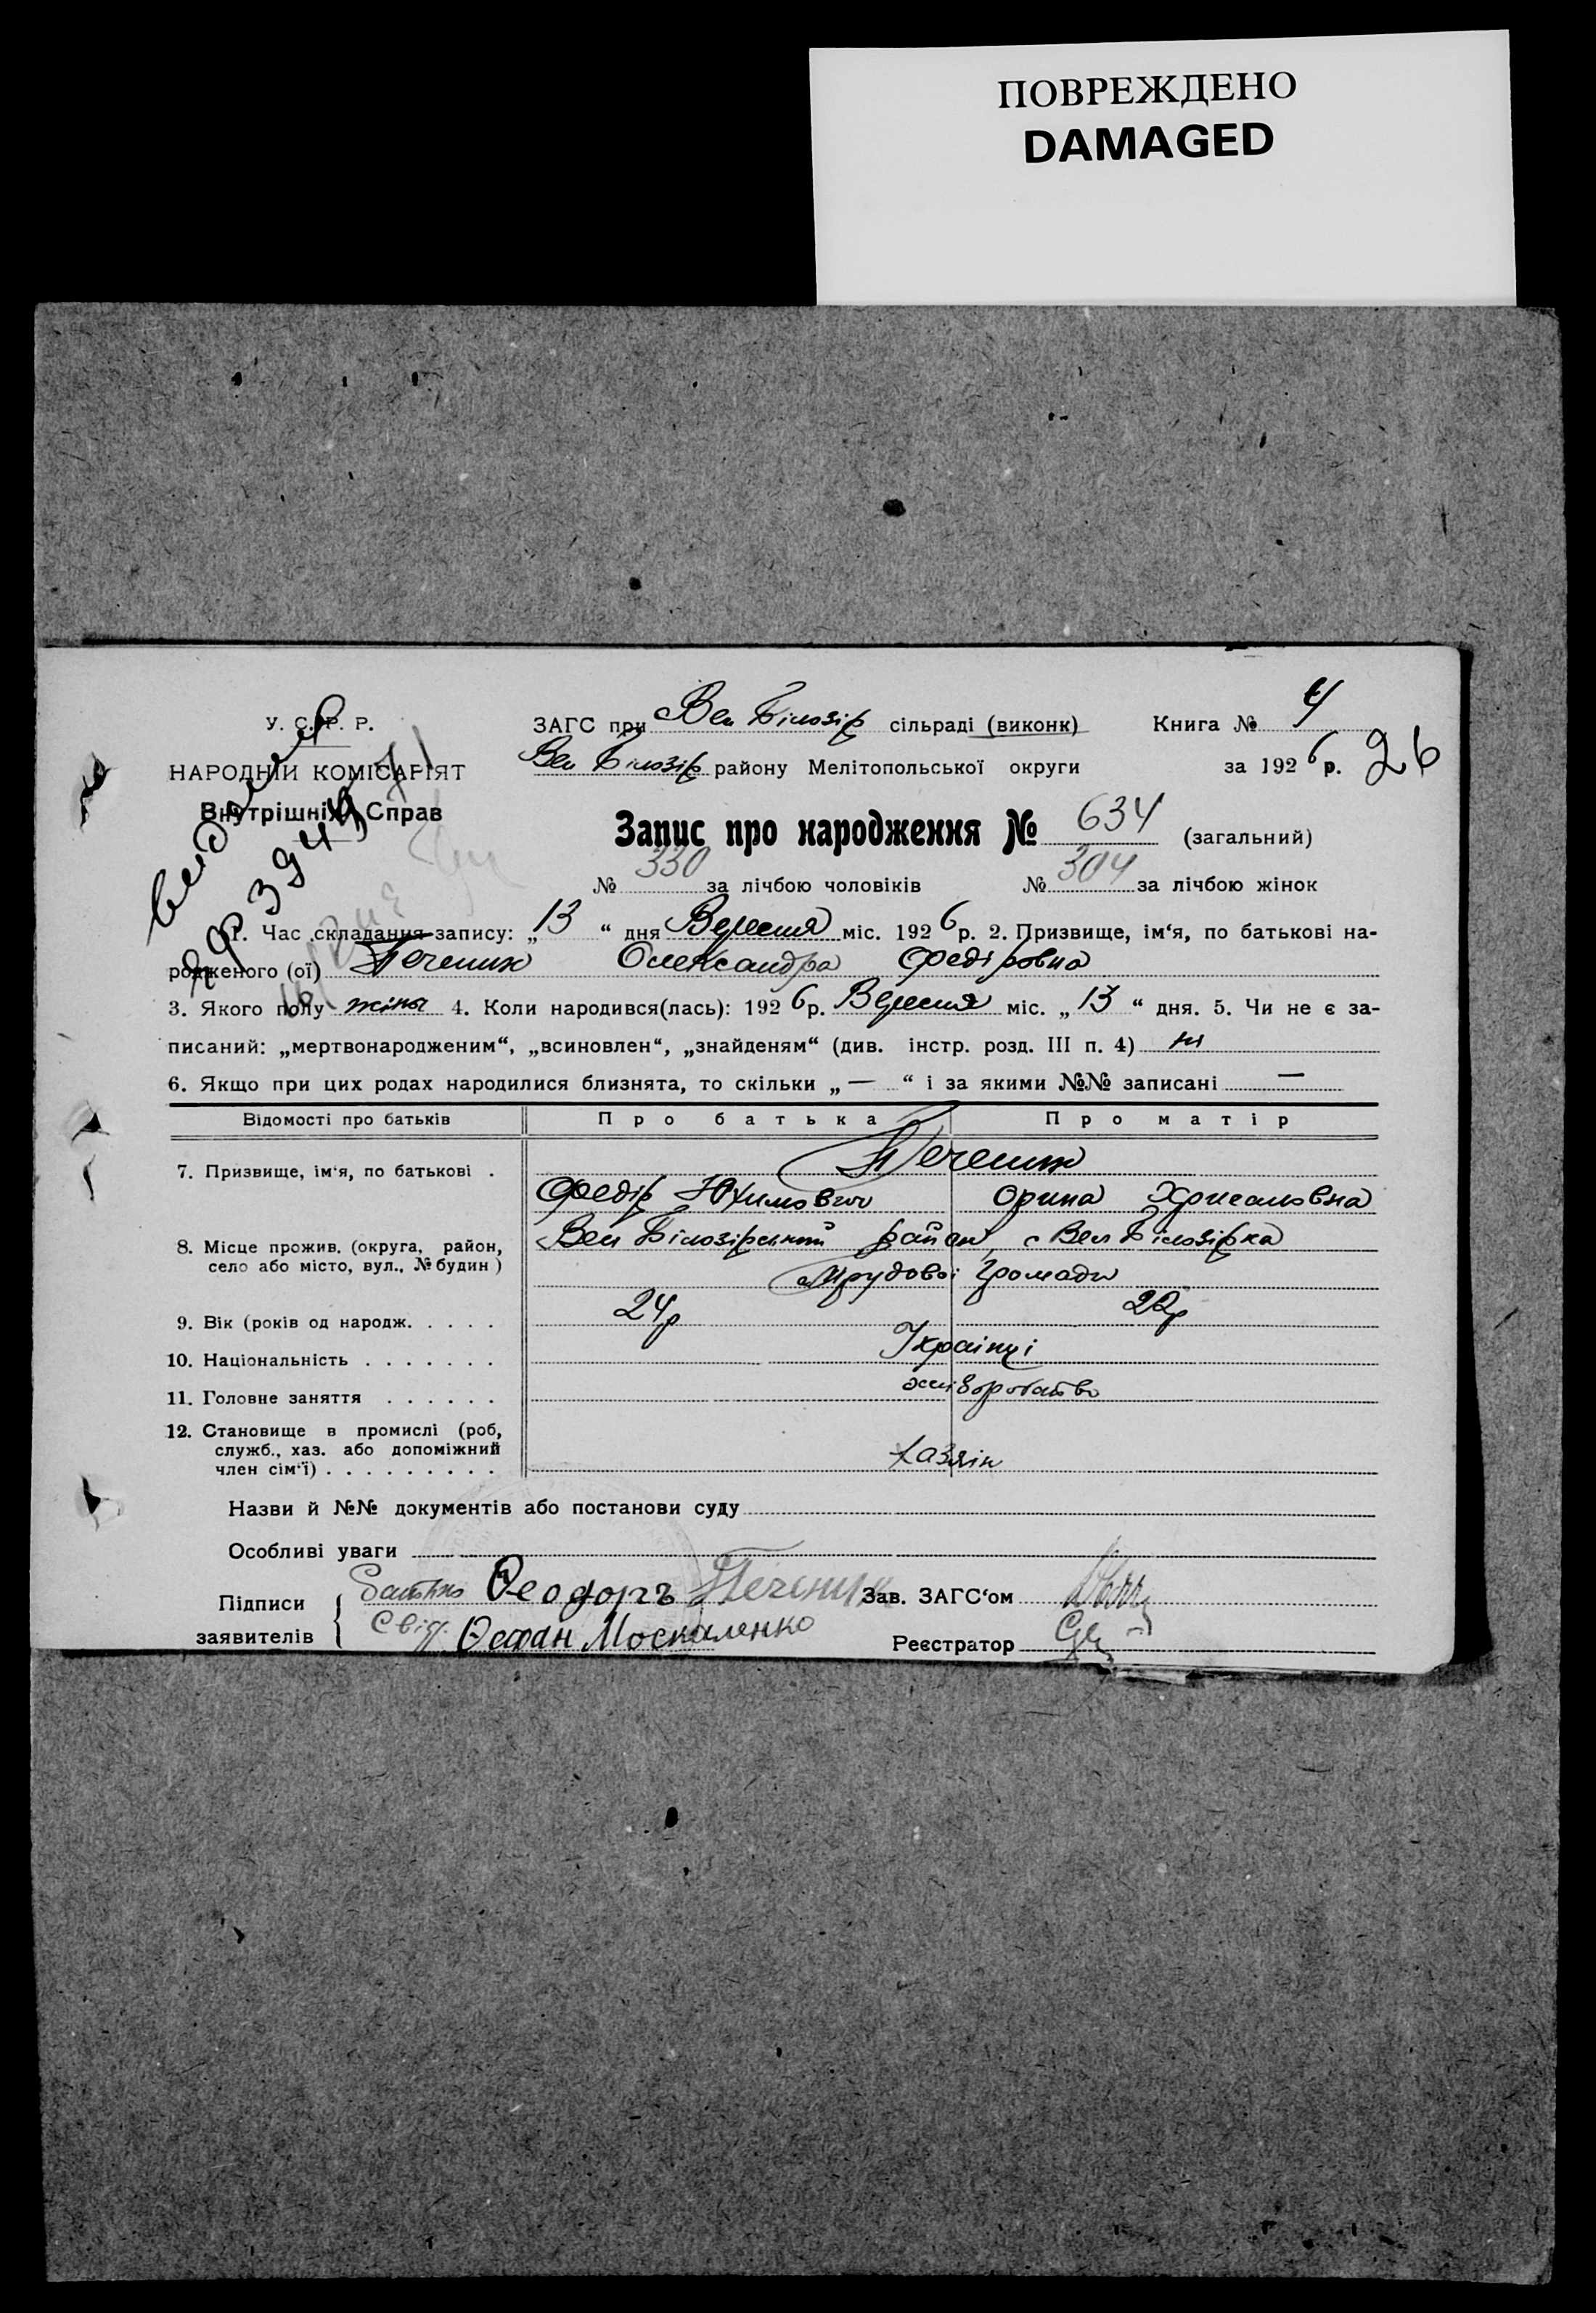 ПОВРЕЖДЕНО
DAMAGED
У. С. Р. Р.
НАРОДНІЙ КОМІСАРІЯТ
Внутрішніх Справ
ЗАГС при Вел Білозір сільраді (виконк) Книга № 4
Вел Білозір району Мелітопольської округи за 1926 р. 26
Запис про народження № 634 (загальний)
№ 330 за лічбою чоловіків № 304 за лічбою жінок
1. Час складання запису: „13“ дня Вересня міс. 1926 р. 2. Призвище, ім‘я, по батькові на-
родженого (ої) Печеник Олександра Федіровна
3. Якого полу жіноч 4. Коли народився(лась): 1926 р. Вересня міс. „13“ дня. 5. Чи не є за-
писаний: „мертвонародженим“, „всиновлен“, „знайденям“ (див. інстр. розд. III п. 4) ні
6. Якщо при цих родах народилися близнята, то скільки „—“ і за якими №№ записані —
Відомості про батьків Про батька Про матір
7. Призвище, ім‘я, по батькові . Печеник
Федір Юхимович Орина Хрисановна
8. Місце прожив. (округа, район, село або місто, вул., № будин) Вел Білозірський район, с Вел Білозірка
Трудової Громади
9. Вік (років од народж. . . . . 24р 22р
10. Національність . . . . . . . Українці
11. Головне заняття . . . . . . хліборобство
12. Становище в промислі (роб,
служб., хаз. або допоміжний
член сім‘ї) . . . . . . . . . хазяін
Назви й №№ документів або постанови суду
Особливі уваги
Підписи заявителів
Батько Ѳеодоръ Печеник Зав. ЗАГС‘ом
Свід. Ѳеофан Москаленко Реєстратор